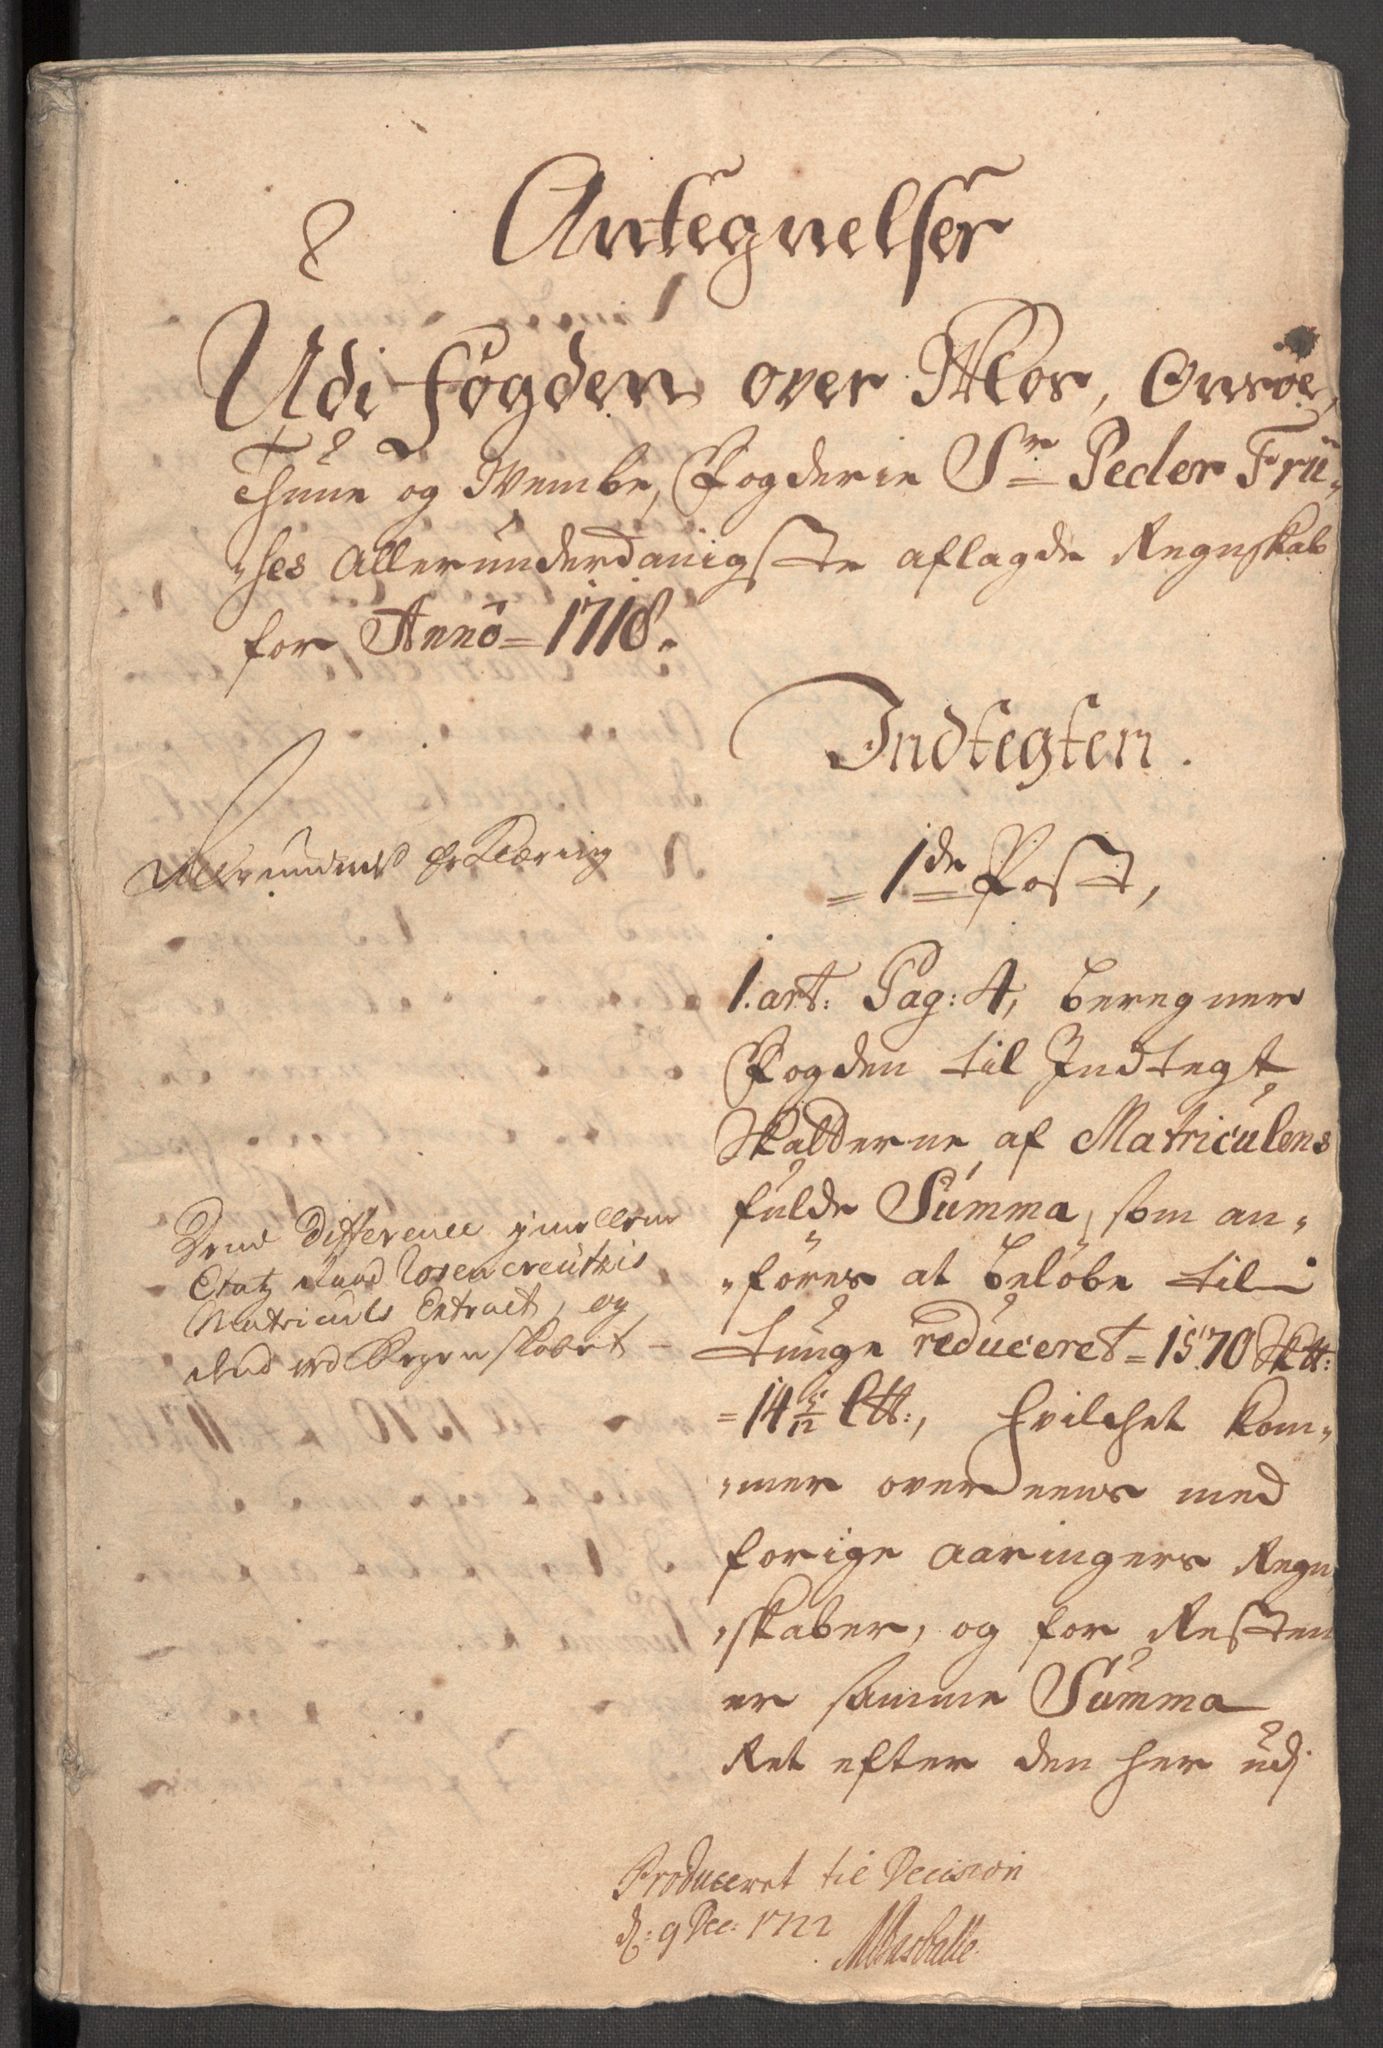 8
Antegnelser
Udi fogden over Mos, Onsøe,
Thune og Wembe, Fogderie Sr Peder Frü-
ses Allerunderdanigste aflagde Regnskab
for Anno 1718.
Indtegten.
Allerunderd Erklæring
1de Post,
1. art: Pag: 4, beregner
Fogden til Indtegt
Skatterne af Matriculens
fulde Summa, som an-
føres at beløbe til
tunge reduceret 1570 Skt:
14 5/12 Ltt:, hvilchet kom-
mer over eens med
forige aaringers Regn-
skaber, og for Resten
er samme Summa
Ret efter den her udj
Dend Difference imellem
Etatz Raad Rosencreutzis
Matriculs Extract, og
dend ved Regenskabet
Produceret til Decision
d: 9 Dec: 1722